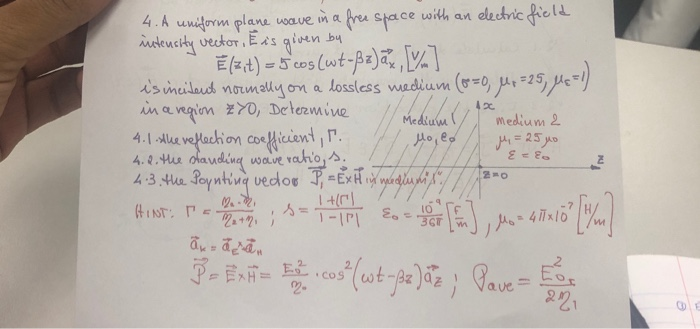 4. A uniform plane wave in a free space with an electric field
intencity vector, E⃗ is given by
E⃗(z,t) = 5 cos(ωt-βz) a⃗x, [V/m]
is incident normally on a lossless medium (σ=0, μr=25, με=1)
in a region z>0, Determine
4.1. the reflection coefficient, Γ.
4.2. the standing wave ratio, s.
4.3. the Poynting vector P⃗1 = E⃗xH⃗ in medium "1".
Medium 1
μ0, ε0
x
medium 2
μ1 = 25 μ0
ε = ε0
z
z=0
HINT: Γ = (η2-η1)/(η2+η1) ; s = (1+|Γ|)/(1-|Γ|) ε0 = 10^-9/36π [F/m], μ0 = 4π×10^-7 [H/m]
a⃗k = a⃗E × a⃗H
P⃗ = E⃗xH⃗ = E0²/η0 · cos²(ωt-βz) a⃗z ; Pave = E0r²/2η1